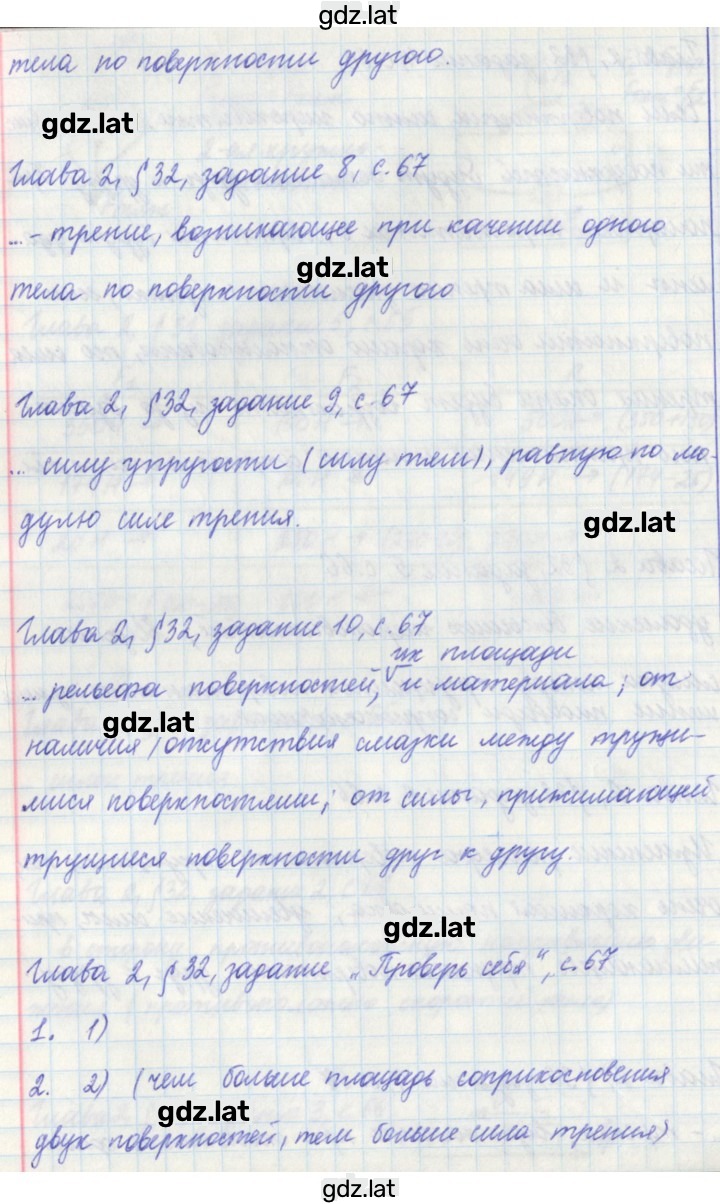 gdz.lat
тела по поверхности другого.
gdz.lat
Глава 2, § 32, задание 8, с. 67
... - трение, возникающее при качении одного
gdz.lat
тела по поверхности другого
Глава 2, § 32, задание 9, с. 67
... силу упругости (силу тяги), равную по мо-
дулю силе трения.
gdz.lat
Глава 2, § 32, задание 10, с. 67
их площади
... рельефа поверхностей, и материала; от
gdz.lat
наличия/отсутствия смазки между трущи-
мися поверхностями; от силы, прижимающей
трущиеся поверхности друг к другу.
gdz.lat
Глава 2, § 32, задание „Проверь себя“, с. 67
1. 1)
2. 2) (чем больше площадь соприкосновения
gdz.lat
двух поверхностей, тем больше сила трения)
gdz.lat